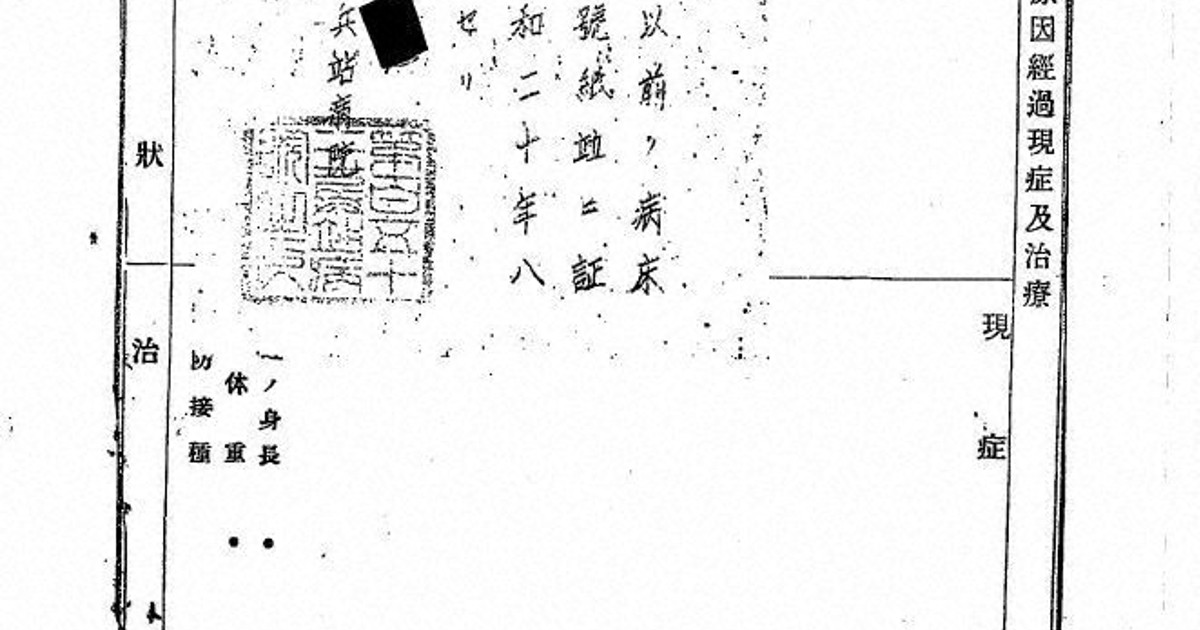 原因經過現症及治療
現症
以前ノ病床
號紙並ニ証
和二十年八
セリ
兵站病院
第百五十
兵站病
院
ノ身長
体重
接種
狀
治